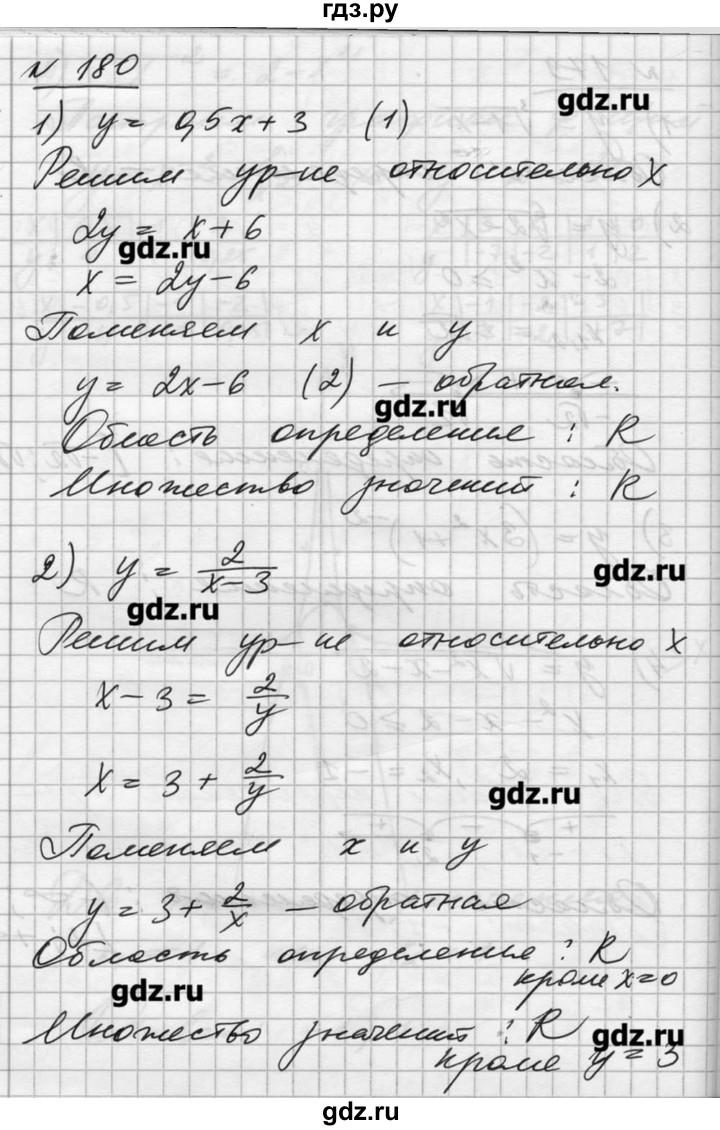 гдз.ру
N 180
gdz.ru
1) y = 0,5x + 3 (1)
Решим ур-ие относительно x
2y = x + 6
gdz.ru
x = 2y - 6
Поменяем x и y
y = 2x - 6 (2) - обратная.
gdz.ru
Область определения : R
Множество значений : R
2) y = 2/(x - 3)
gdz.ru
gdz.ru
Решим ур-ие относительно x
x - 3 = 2/y
x = 3 + 2/y
gdz.ru
Поменяем x и y
y = 3 + 2/x - обратная
Область определения : R
кроме x = 0
gdz.ru
Множество значений : R
gdz.ru
кроме y = 3
gdz.ru